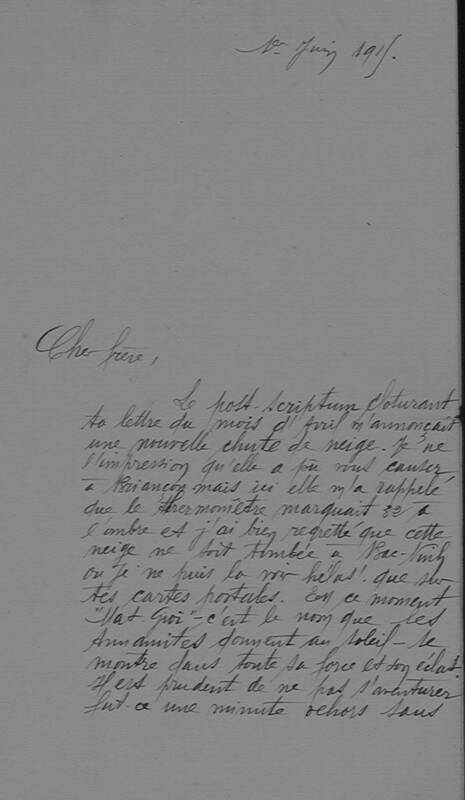 1er Juin 1915.
Cher frère,
Le post-scriptum cloturant
ta lettre du mois d'Avril m'annonçait
une nouvelle chute de neige. Je ne
l'impression qu'elle a pu vous causer
à Briançon mais ici elle m'a rappelé
que le thermomètre marquait 32 à
l'ombre et j'ai bien regretté que cette
neige ne soit tombée à Bac-Ninh
où je ne puis la voir hélas! que sur
tes cartes postales. En ce moment
"Mat Goi" - c'est le nom que les
Annamites donnent au soleil - se
montre dans toute sa force et son éclat.
Il est prudent de ne pas s'aventurer
fut-ce une minute dehors sans